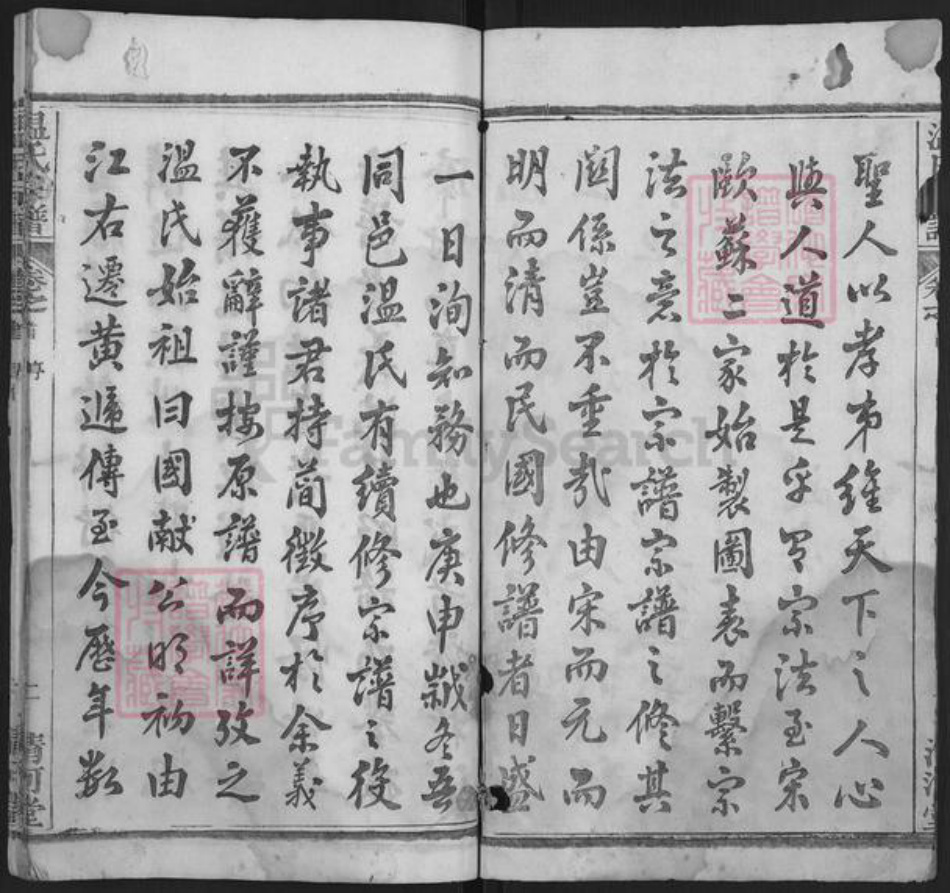 聖人以孝弟維天下之人心
與人道於是乎有宗法至宋
歐蘇二家始製圖表而繫宗
法之意於宗譜宗譜之修其
関係豈不重哉由宋而元而
明而清而民國修譜者日盛
一日洵知務也庚申歲冬吾
同邑溫氏有續修宗譜之役
執事諸君持蕳徵序於余義
不獲辭謹按原譜而詳攷之
溫氏始祖曰國献公明初由
江右遷黃遞傳至今歷年數
溫氏宗譜
卷之
清河堂
FamilySearch